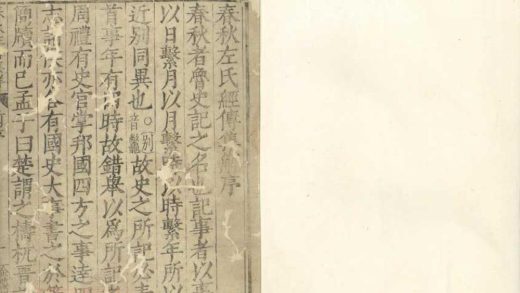 春秋左氏經傳集解序
春秋者魯史記之名也記事者以事
以日繫月以月繫時以時繫年所以
近別同異也○別音鼈故史之所記必表
首事年有四時故錯舉以爲所記
周禮有史官掌邦國四方之事達四
志諸侯亦各有國史大事書之於策
簡牘而已孟子曰楚謂之檮杌晉